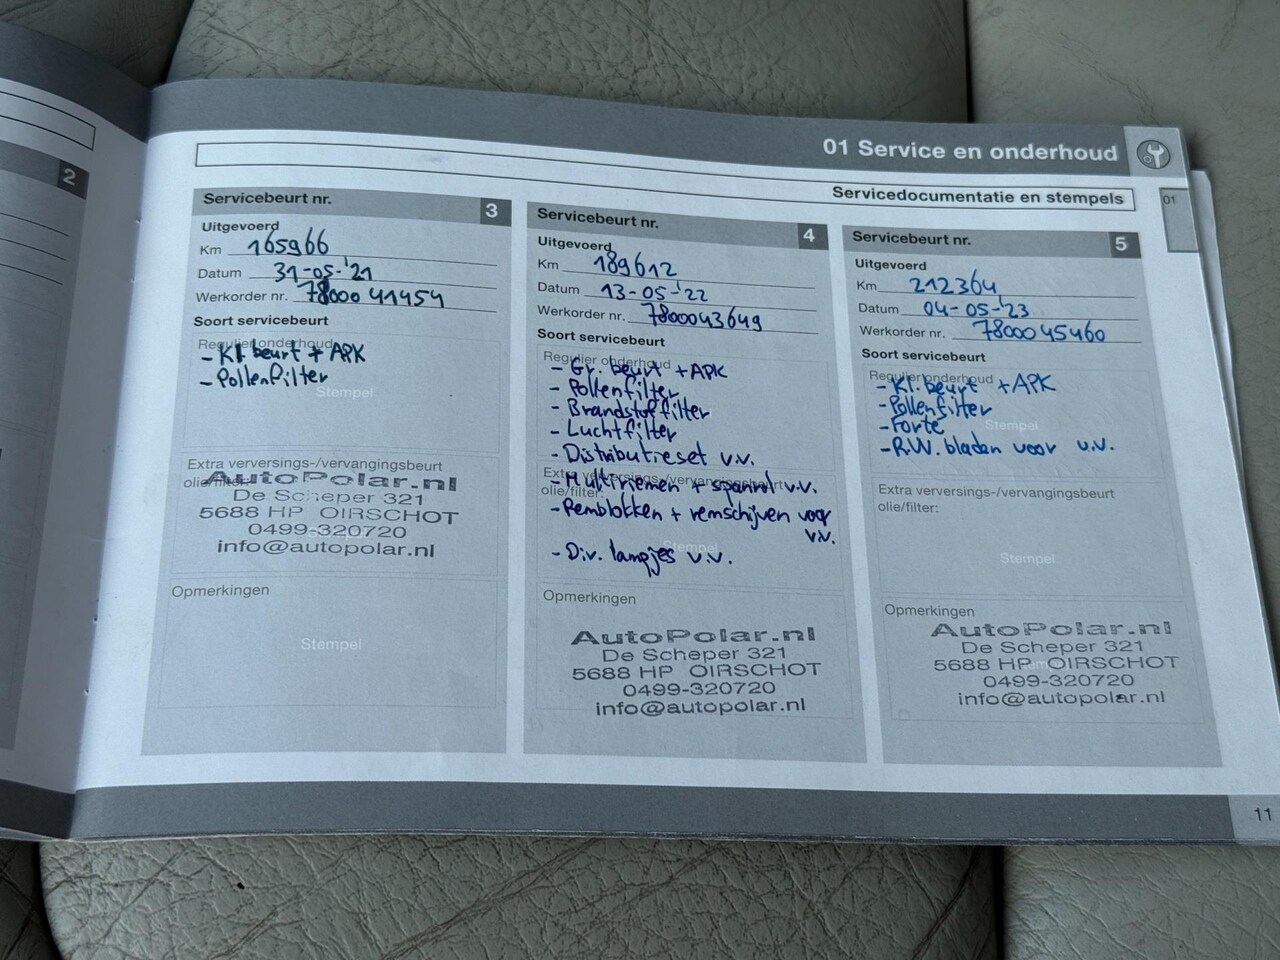 01 Service en onderhoud
Servicedocumentatie en stempels
01
2
Servicebeurt nr. 3
Uitgevoerd
Km 165966
Datum 31-05-'21
Werkorder nr. 7800041454
Soort servicebeurt
Regulier onderhoud
- Kl. beurt + APK
- Pollenfilter
Stempel
Extra verversings-/vervangingsbeurt
olie/filter:
AutoPolar.nl
De Scheper 321
5688 HP OIRSCHOT
0499-320720
info@autopolar.nl
Opmerkingen
Stempel
Servicebeurt nr. 4
Uitgevoerd
Km 189612
Datum 13-05-'22
Werkorder nr. 7800043649
Soort servicebeurt
Regulier onderhoud
- Gr. beurt + APK
- Pollenfilter
- Brandstoffilter
- Luchtfilter
- Distributieset v.v.
Extra verversings-/vervangingsbeurt
olie/filter:
- Multiriemen + spanrol v.v.
- Remblokken + remschijven voor
v.v.
Stempel
- Div. lampjes v.v.
Opmerkingen
AutoPolar.nl
De Scheper 321
5688 HP OIRSCHOT
0499-320720
info@autopolar.nl
Servicebeurt nr. 5
Uitgevoerd
Km 212364
Datum 04-05-'23
Werkorder nr. 7800045460
Soort servicebeurt
Regulier onderhoud
- Kl. beurt + APK
- Pollenfilter
- Forte
Stempel
- R.W. bladen voor v.v.
Extra verversings-/vervangingsbeurt
olie/filter:
Stempel
Opmerkingen
AutoPolar.nl
De Scheper 321
5688 HP OIRSCHOT
0499-320720
info@autopolar.nl
11